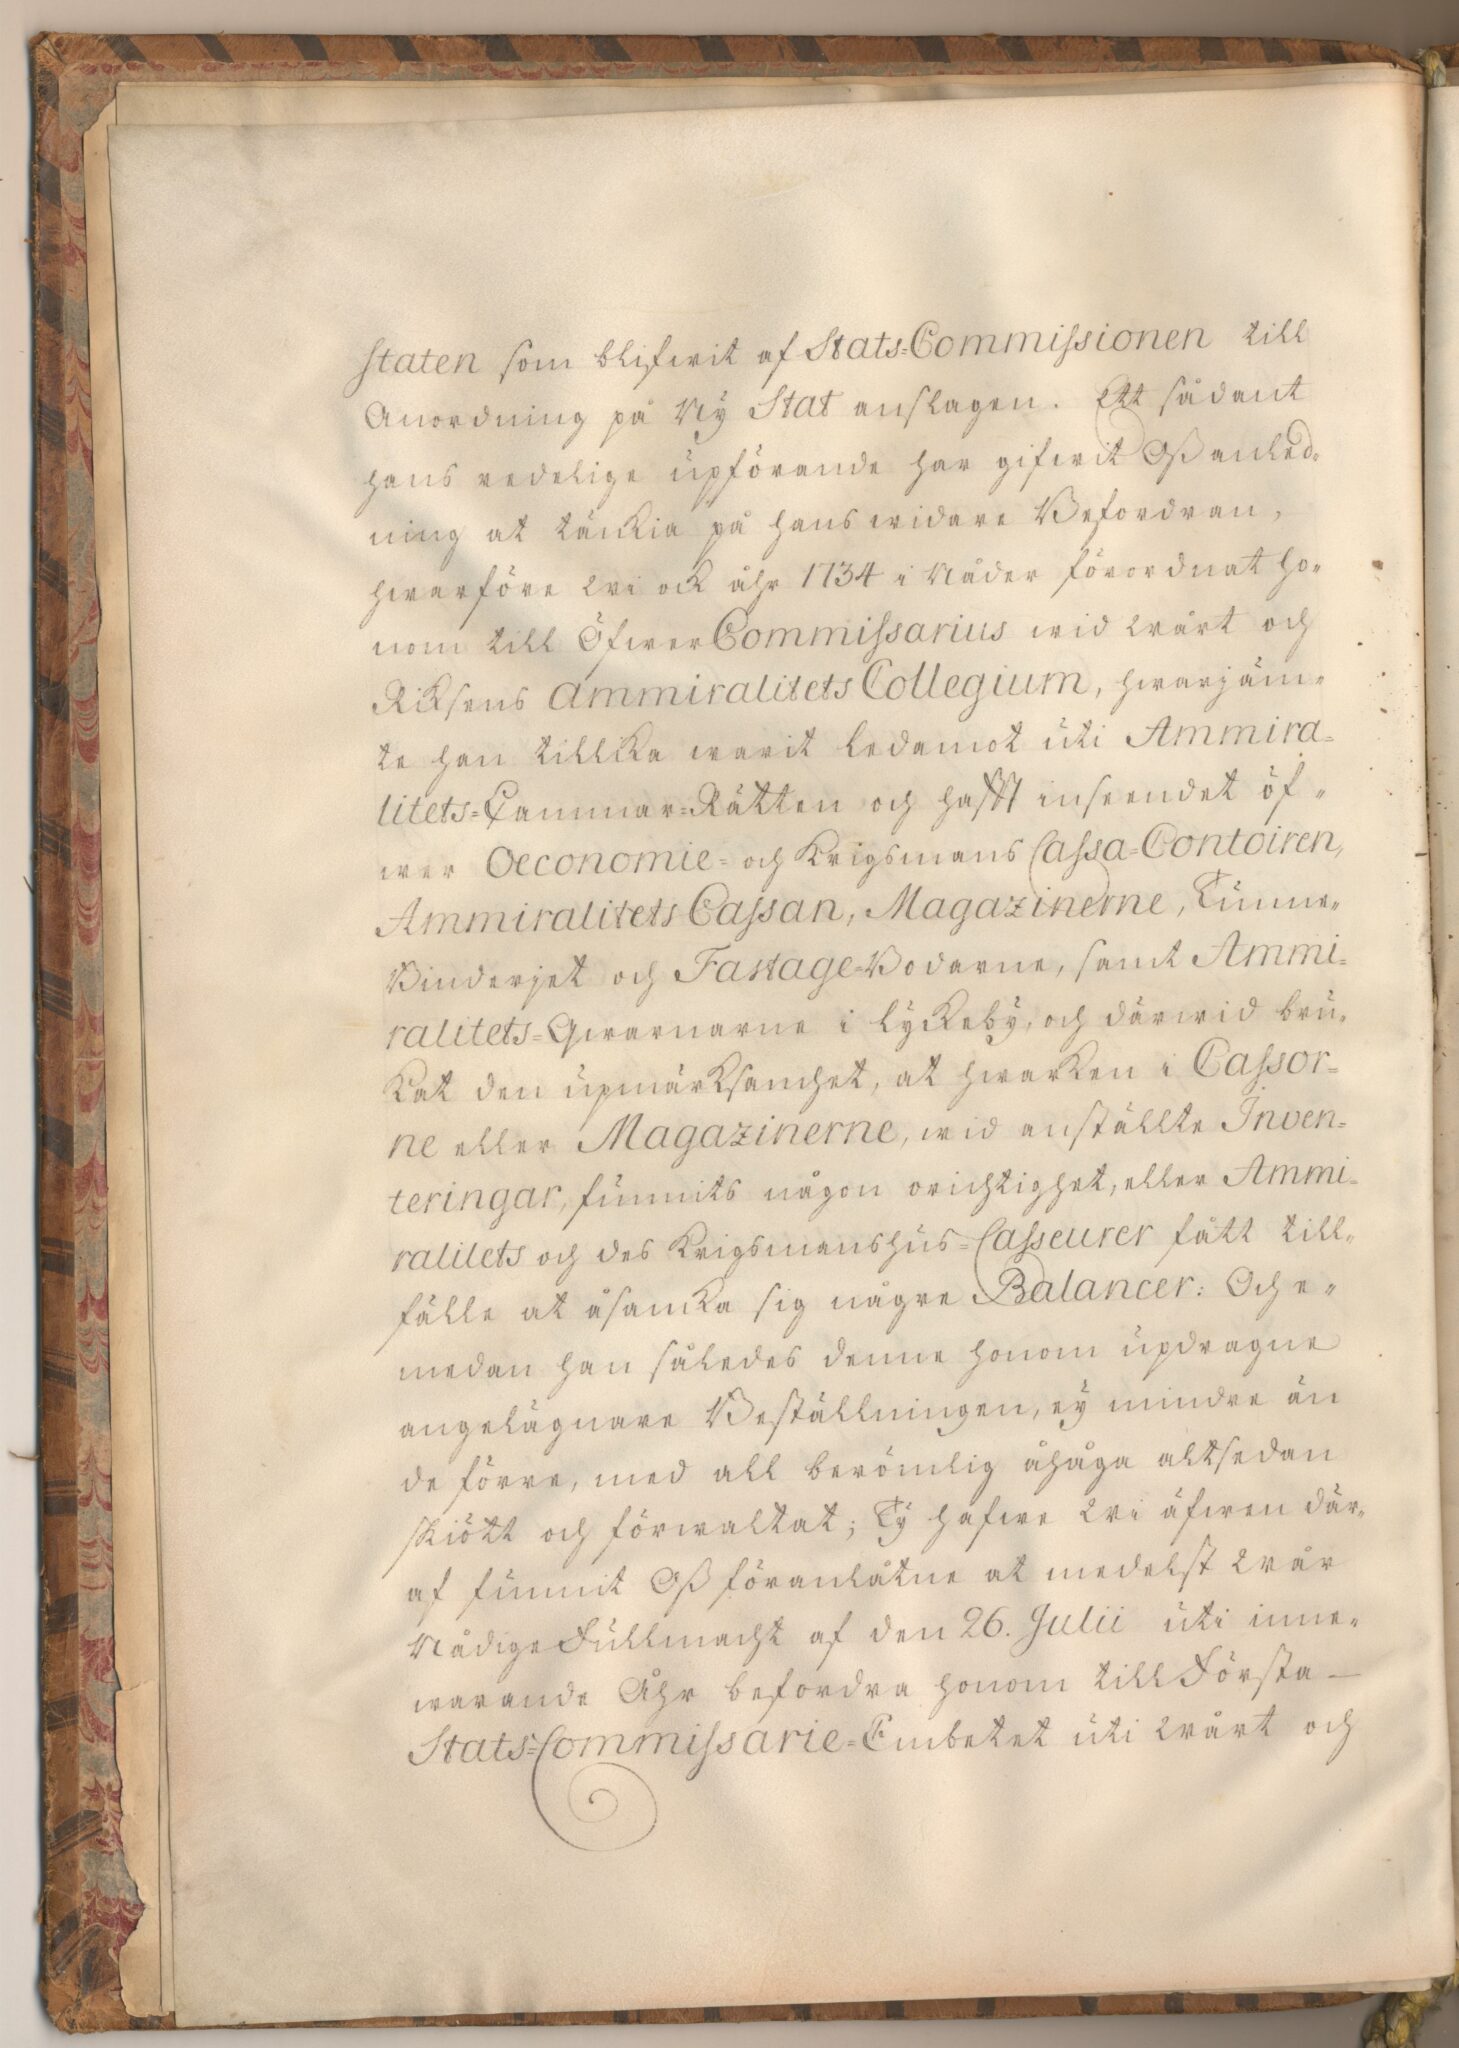 staten som blifwit af Stats=Commissionen till
Anordning på Ny Stat anslagen. Ett sådant
hans redelige upförande har gifwit Oß anled-
ning at tänckia på hans widare Befordran,
hwarföre Wi ock åhr 1734 i Nåder förordnat ho-
nom till ÖfwerCommissarius wid Wårt och
Riksens Ammiralitets Collegium, hwarjäm-
te han tillika warit ledamot uti Ammira-
litets=Cammar=Rätten och hafft inseendet öf-
wer Oeconomie= och Krigsmans Cassa=Contoiren,
Ammiralitets Cassan, Magazinerne, Tunne-
Binderjet och Fastage=Bodarne, samt Ammi-
ralitets=Qwarnarne i Lyckeby, och därwid bru-
kat den upmärksamhet, at hwarken i Cassor-
ne eller Magazinerne, wid anställte Inven-
teringar, funnits någon orichtighet, eller Ammi-
ralitets och des Krigsmanshus=Casseurer fått till-
fälle at åsamka sig någre Balancer: Och e-
medan han således denne honom updragne
angelägnare Beställningen, ey mindre än
de förre, med all berömlig åhåga altsedan
skiött och förwaltat; Ty hafwe Wi äfwen där-
af funnit Oß föranlåtne at medelst Wår
Nådige Fullmacht af den 26. Julii uti inne-
warande Åhr befordra honom till Första
Stats=Commissarie=Embetet uti Wårt och